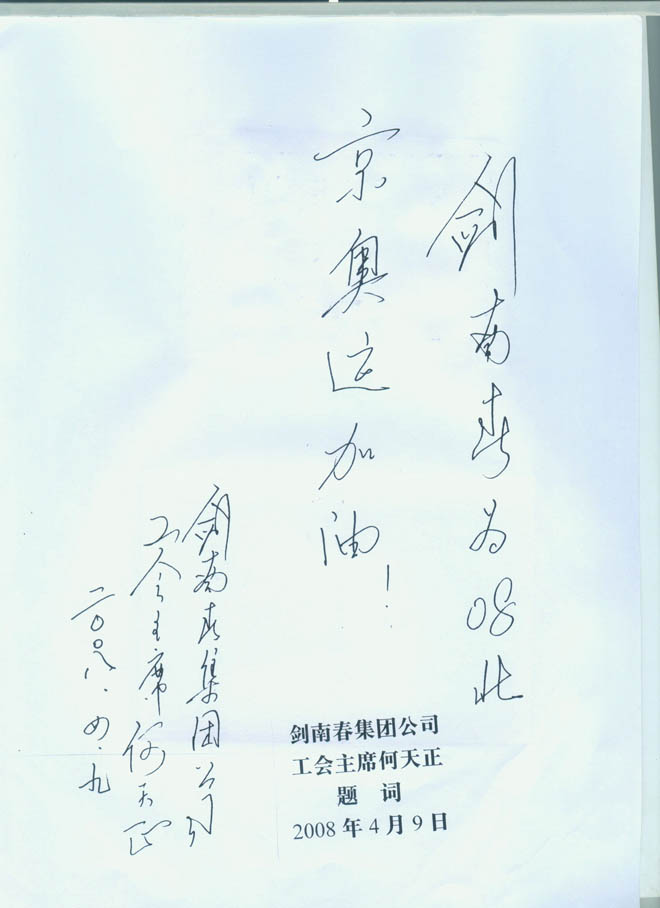 剑南春为08北
京奥运加油！
剑南春集团公司
工会主席何天正
二〇〇八.四.九
剑南春集团公司
工会主席何天正
题 词
2008年4月9日